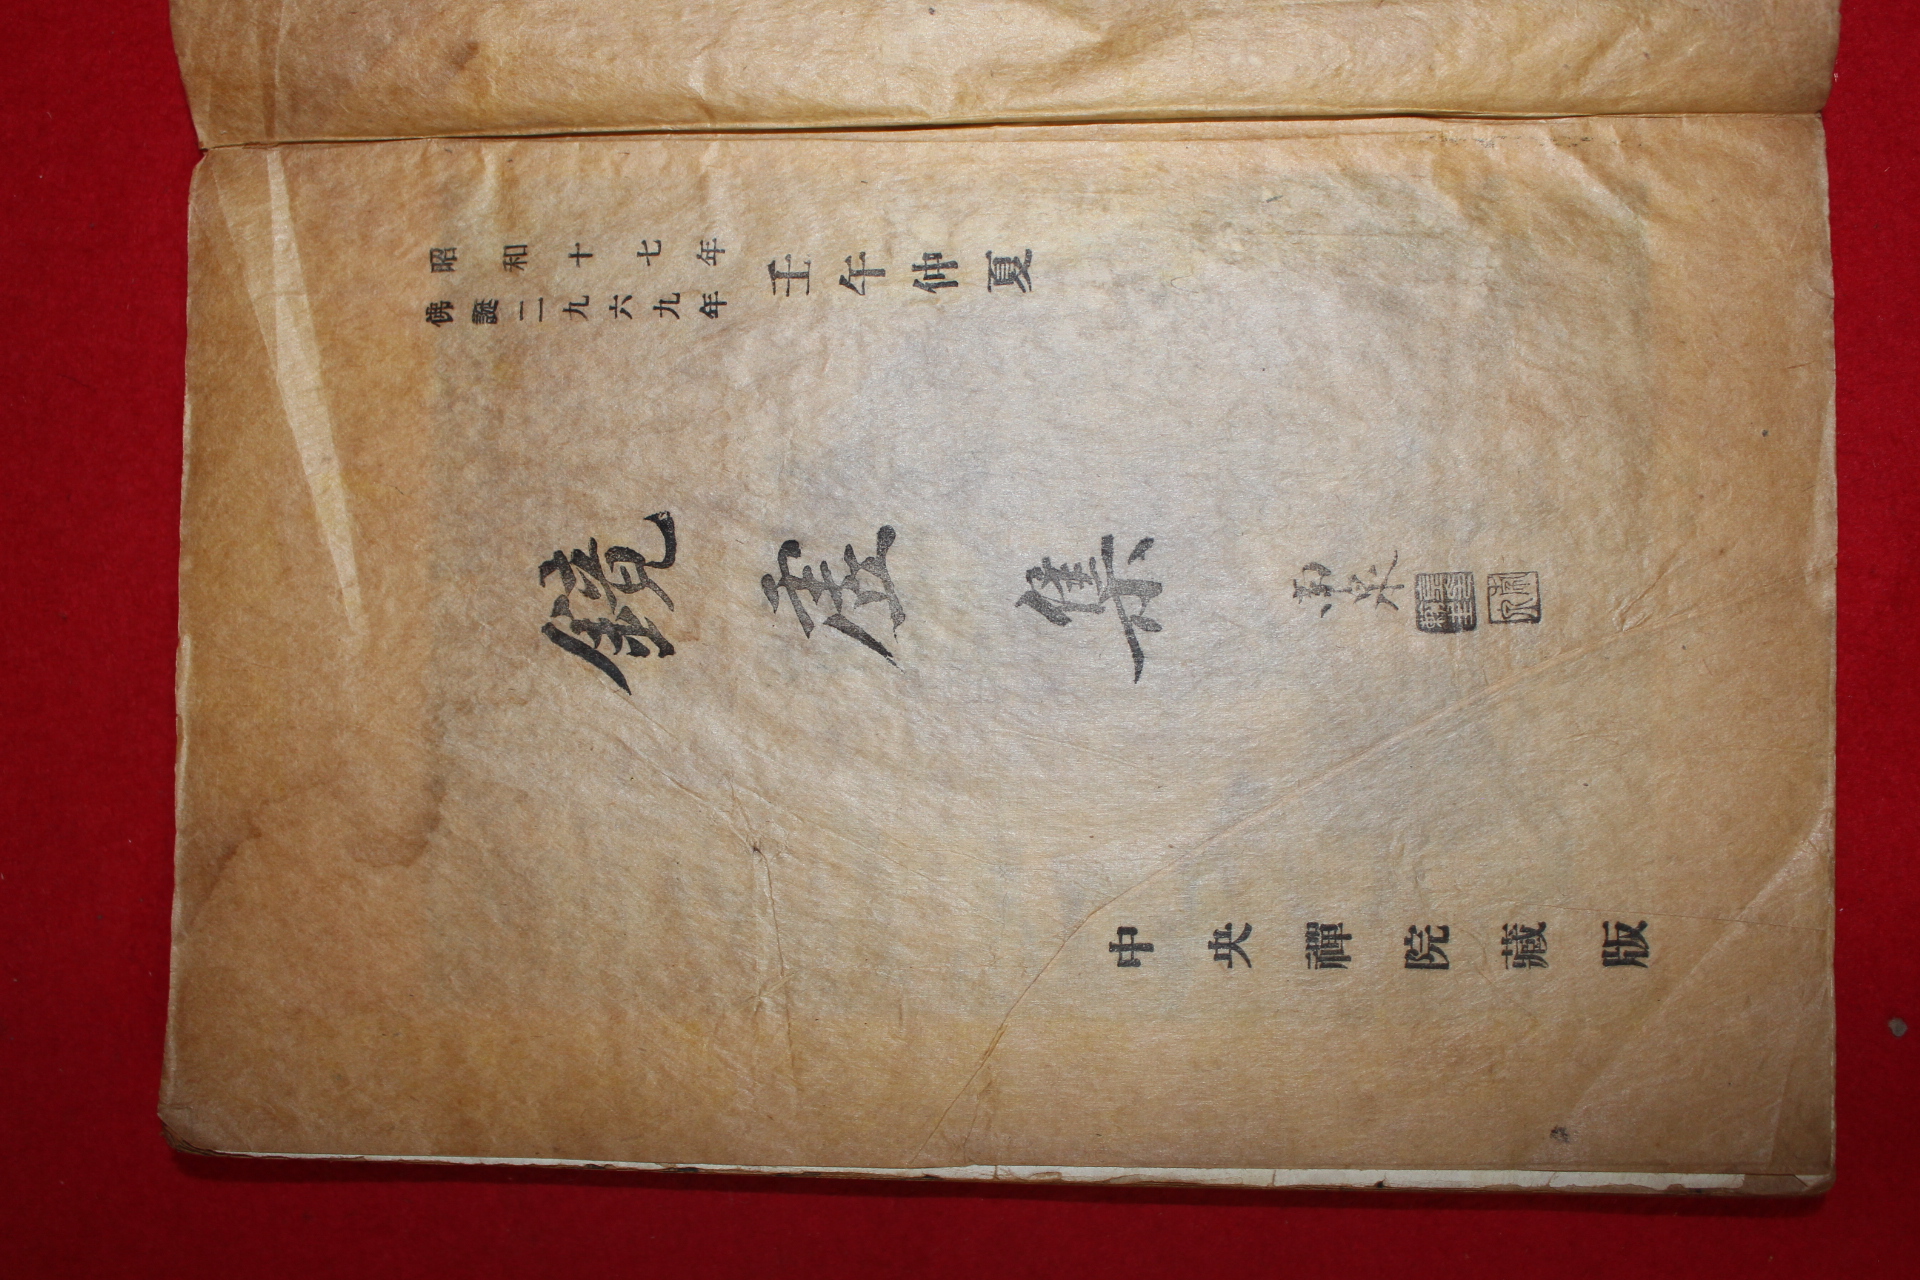 昭和十七年
佛誕二九六九年
壬午仲夏
鏡虛集
中央禪院藏版